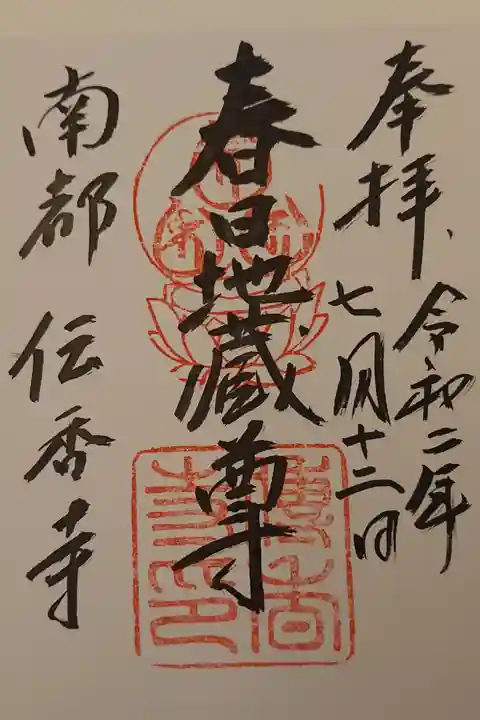 奉拝
令和二年
七月十二日
春日地蔵尊
南都 伝香寺